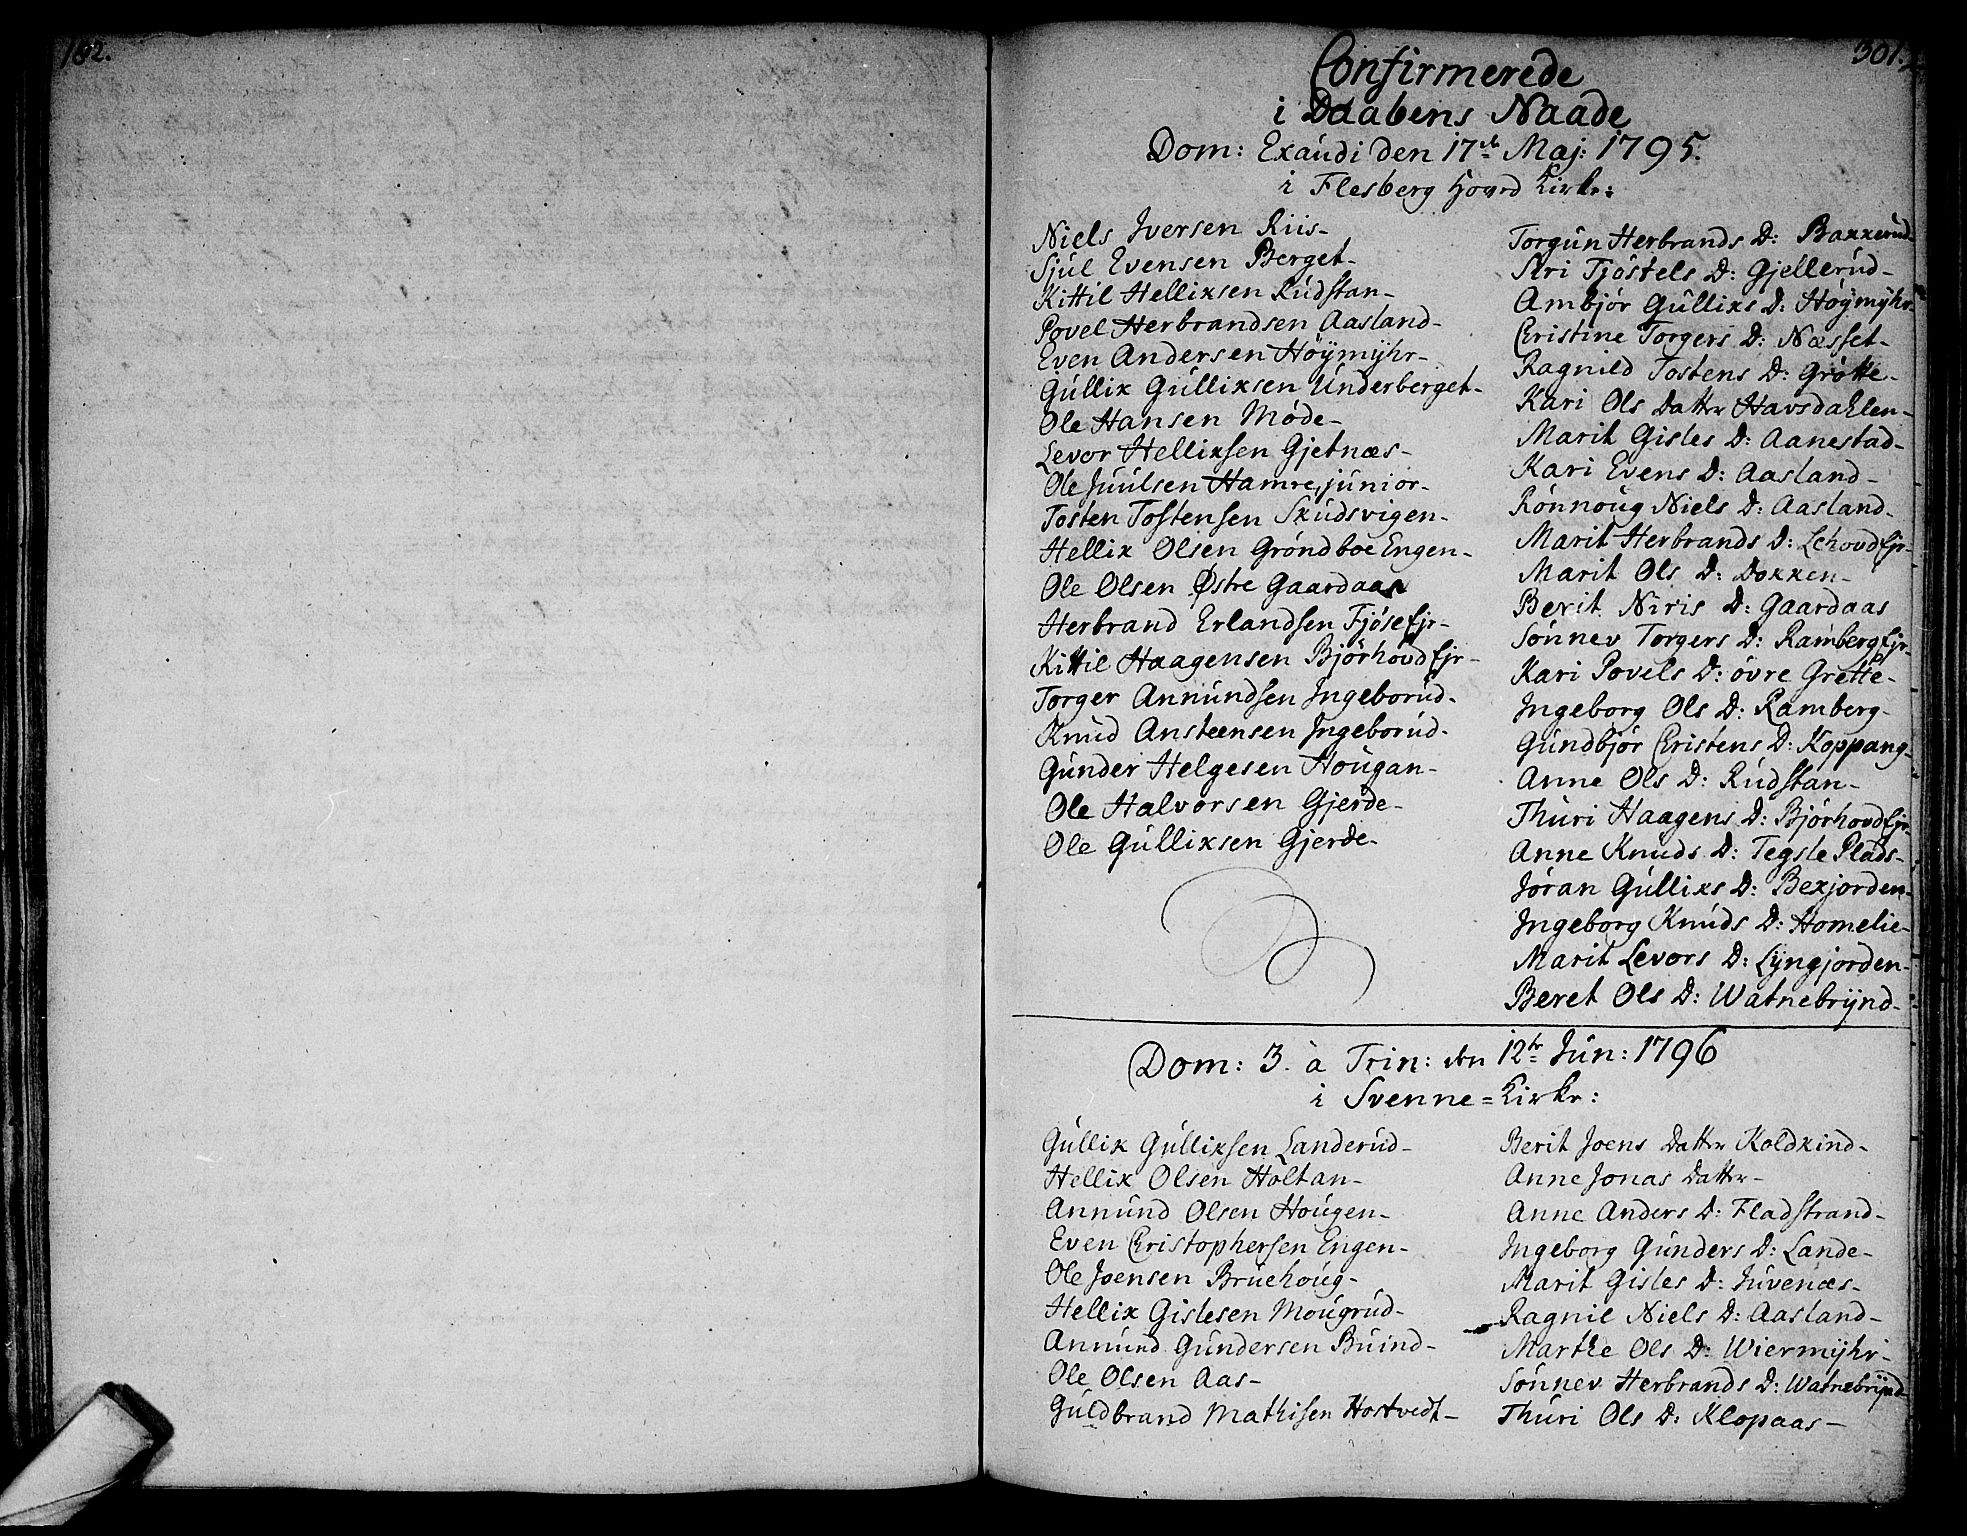 182.
301.
Confirmerede
i Daabens Naade
Dom: Exaudi den 17de Maj: 1795.
i Flesberg Hoved Kirke:
Niels Iversen Riis-
Sjul Evensen Berget-
Kittil Hellixsen Rudstan-
Povel Herbrandsen Aasland-
Even Andersen Höÿmÿhr-
Gullix Gullixsen Underberget-
Ole Hansen Møde-
Levor Hellixsen Gjetnæs-
Ole Juulsen Hamre, junior-
Tosten Tostensen Skudsvigen-
Hellix Olsen Gröndboe Engen-
Ole Olsen Østre Gaardaas
Herbrand Erlandsen Fjøse Ejr-
Kittil Haagensen Bjørhovd Ejr-
Torger Annundsen Ingeborud-
Knud Ansteensen Ingeborud-
Gunder Helgesen Hougan-
Ole Halvorsen Gjerde-
Ole Gullixsen Gjerde-
Torgun Herbrands D: Baxxerud-
Siri Tjøstels D: Gjellerud-
Ambjør Gullixs D: Höÿmÿhr-
Christine Torgers D: Næsset-
Ragnild Tostens D: Grøtte-
Kari Ols Datter Havsdahlen-
Marit Gisles D: Aanestad-
Kari Evens D: Aasland-
Rönnoug Niels D: Aasland-
Marit Herbrands D: Lehovd Ejr-
Marit Ols D: Doxxen-
Berit Niris D: Gaardaas
Sønnev Torgers D: Ramberg Ejr-
Kari Povels D: øvre Grette-
Ingeborg Ols D: Ramberg-
Gundbjør Christens D: Koppang-
Anne Ols D: Rudstan-
Thuri Haagens D: Bjørhovd Ejr-
Anne Knuds D: Tegsle Plads-
Jøran Gullixs D: Bexjorden-
Ingeborg Knuds D: Homelie-
Marit Levors D: Lÿngjorden-
Beret Ols D: Watnebrÿnd-
Dom: 3. à Trin: den 12te Jun: 1796
i Svenne=Kirke:
Gullix Gullixsen Landerud-
Hellix Olsen Holtan-
Annund Olsen Hougen-
Even Christophersen Engen-
Ole Joensen Bruehoug-
Hellix Gislesen Mougrud-
Annund Gundersen Buind-
Ole Olsen Aas-
Guldbrand Mathisen Hostvedt-
Berit Joens Datter Koldkind-
Anne Jonas Datter-
Anne Anders D: Fladstrand-
Ingeborg Gunders D: Lande-
Marit Gisles D: Juvenæs-
Ragnil Niels D: Aasland-
Marthe Ols D: Wiermÿhr-
Sønnev Herbrands D: Watnebrÿnd
Thuri Ols D: Klopaas-